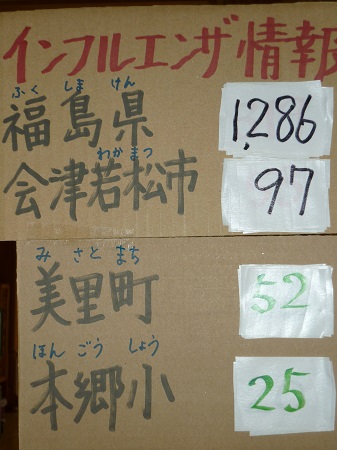 インフルエンザ情報
ふく しま けん
福島県 1,286
わか まつ
会津若松市 97
み さと まち
美里町 52
ほん ごう しょう
本郷小 25